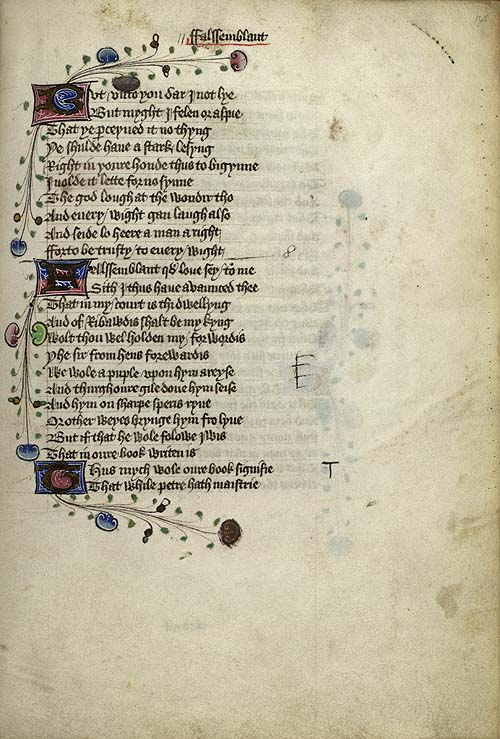 ffalssemblaut
But vnto you dar I not lye
But myght I felen or aspie
That ye pceyued it no thyng
Ye shulde haue a stark lesyng
Right in youre honde thus to bigynne
I nolde it lette for no synne
The god lough at the wondir tho
And euery wight gan laugh also
And seide lo heere a man a right
ffor to be trusty to euery wight
ffalssemblant qd loue sey to me
Sith I thus haue avaunced thee
That in my court is thi dwellyng
And of Ribawdis shalt be my kyng
Wolt thou wel holden my forwordis
Yhe sir from hens forewardis
And hym on sharpe speris ryue
Or other weyes brynge hym fro lyue
But if that he wole folowe iwis
That in oure book writen is
Thus mych wole oure book signifie
That while petre hath maistrie
E
T